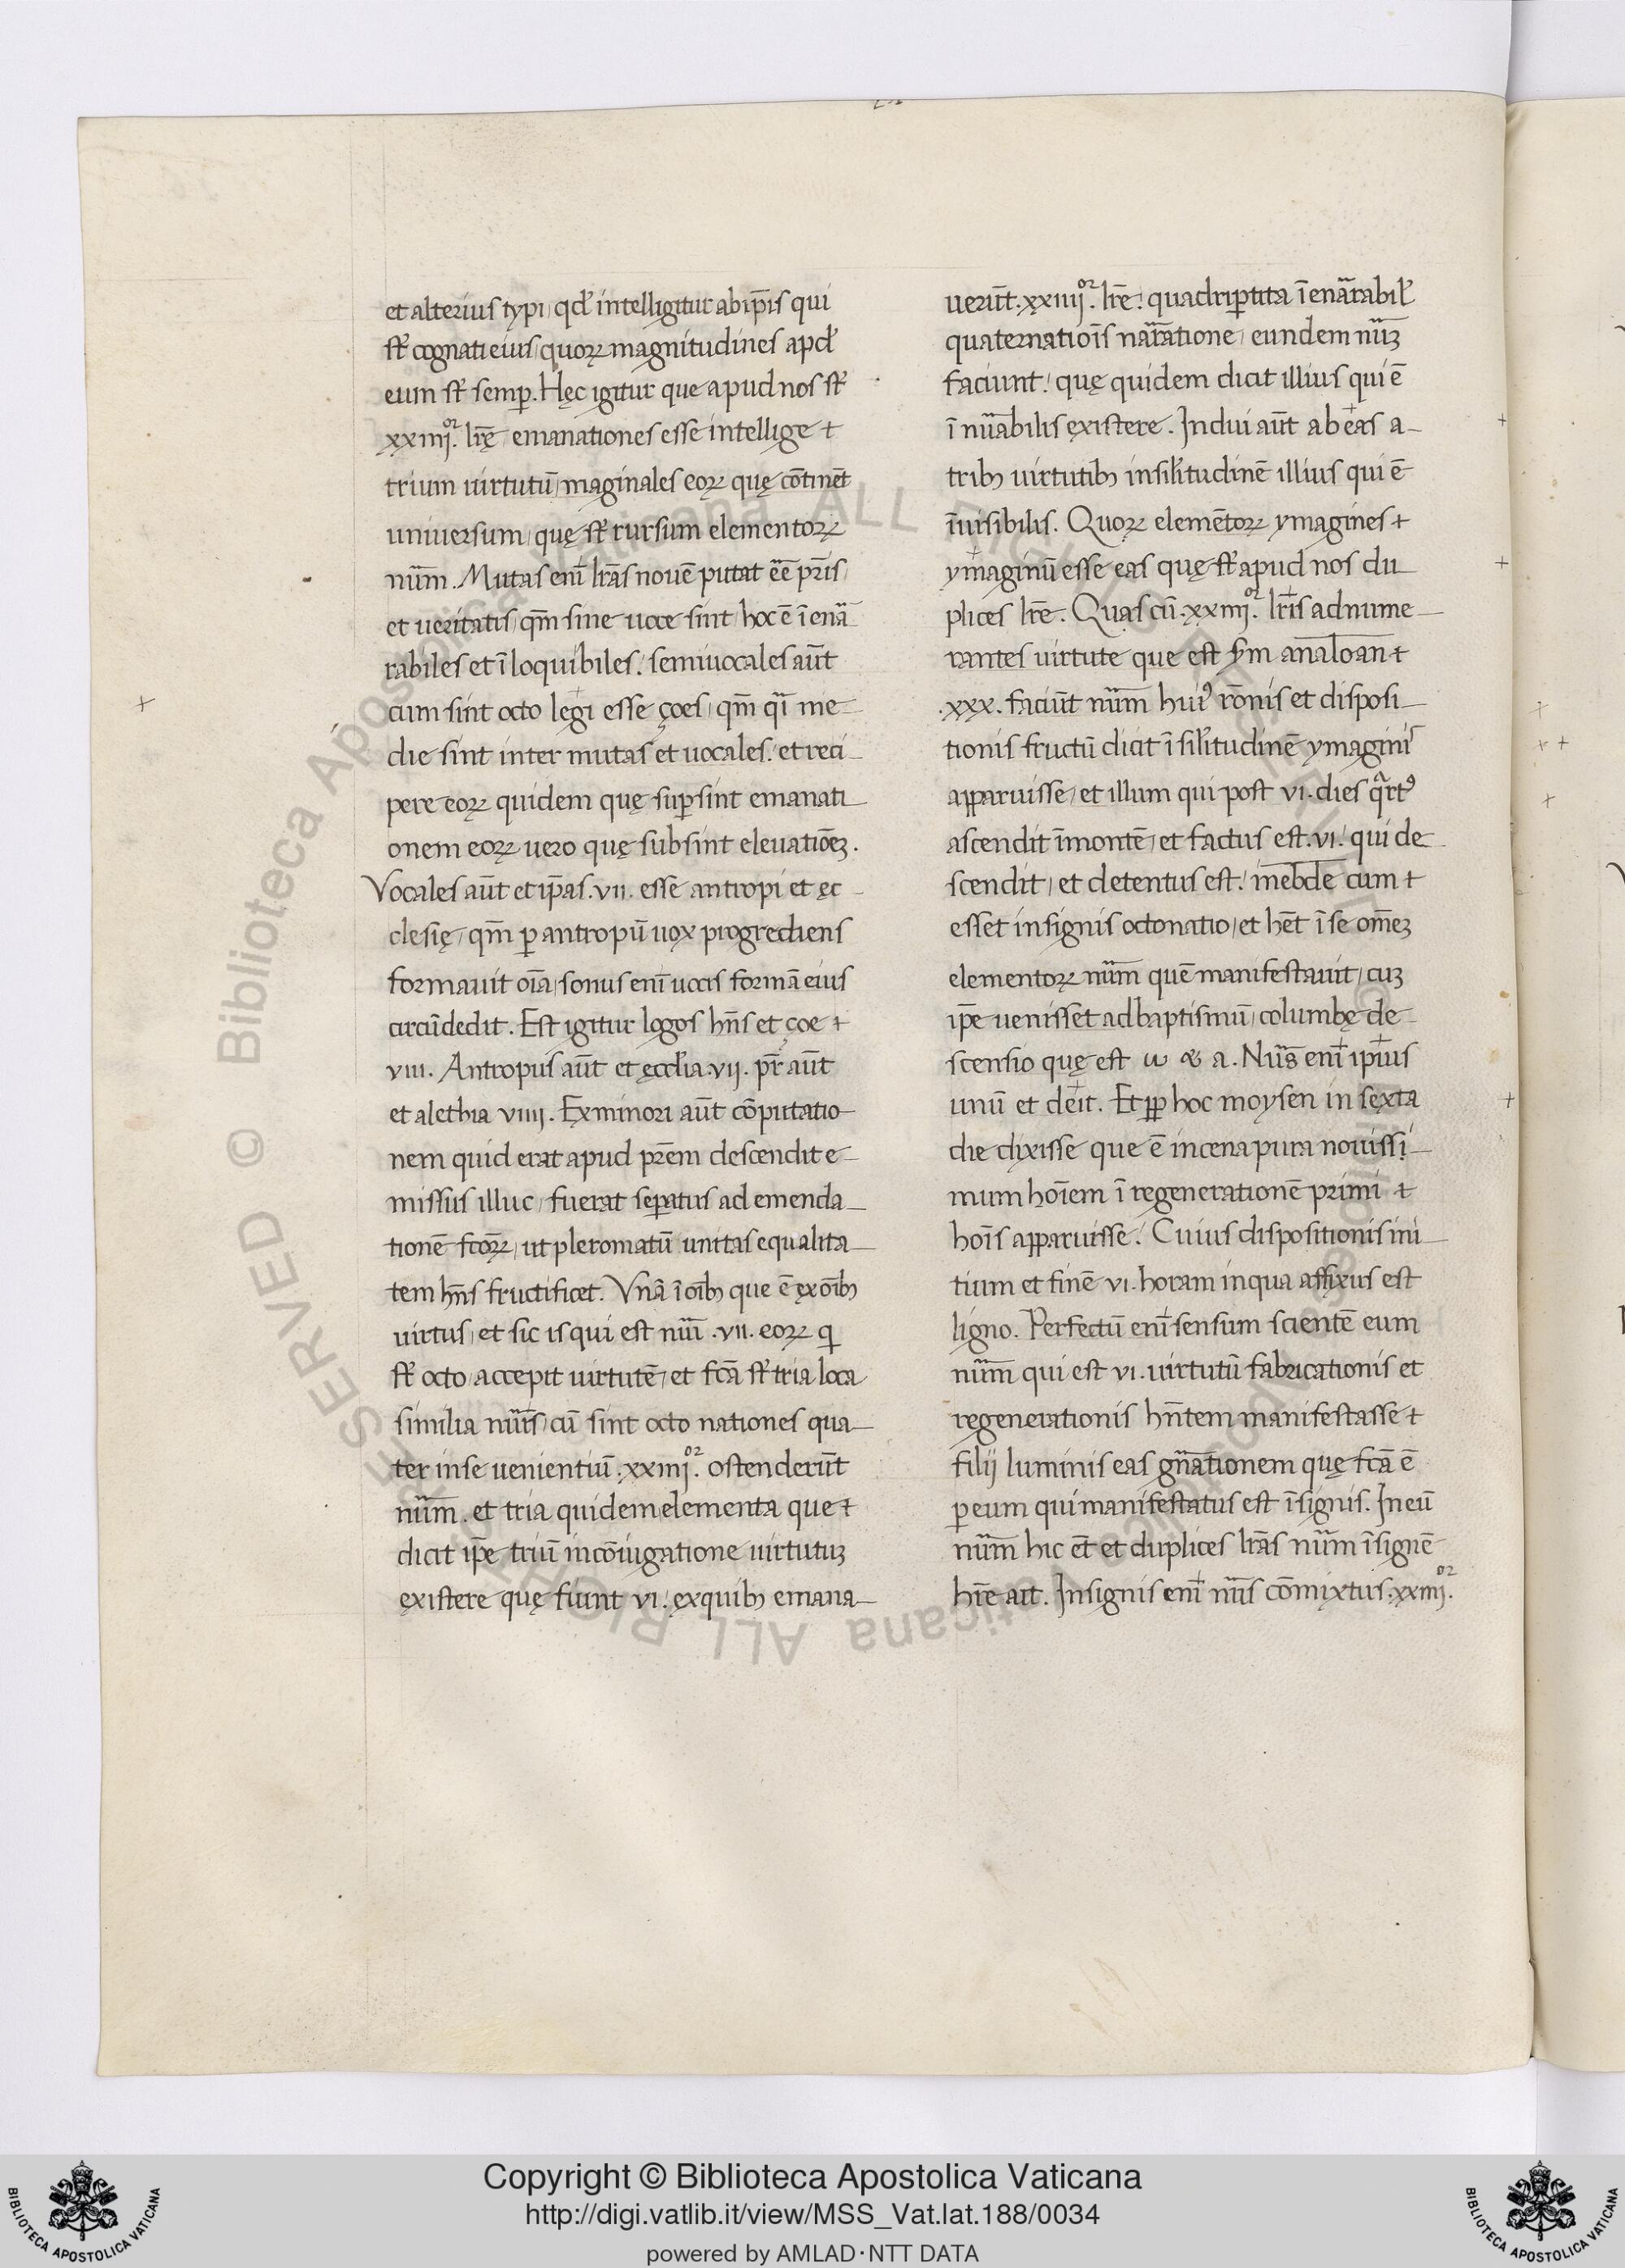 et alterius typi, qđ intelligitur ab ip̄is qui
sƚ cognati eius, quoꝝ magnitudines apđ
eum sƚ semꝑ. Hęc igitur que apud nos sƚ
xxiiijᵒʳ. lr̄ę emanationes esse intellige +
trium uirtutū, maginales eoꝝ quę cōtinēt
universum, quę sƚ rursum elementoꝝ
nūm. Mutas enī lr̄as novē putat eē̄ pr̄is,
et veritatis, qm̄ sine uoce sint, hoc ē īenā
rabiles et īloquibiles. semivocales aūt
cum sint octo legi esse çoes, qm̄ qī me
die sint inter mutas et uocales. et reci
pere eoꝝ quidem quę suꝑ sint emanati
onem eoꝝ vero quę sub sint elevatiōeꝫ.
Vocales aūt et ip̄as .vii. esse antropi et ęc
clesię, qm̄ ꝑ antropū uox progrediens
formavit oīa, sonus enī vocis formā eius
circūdedit. Est igitur logos hn̄s et çoe +
viii. Antropus aūt et ęccƚia .vij. pr̄ aūt
et alethia viiij. Ex minori aūt cōputatio
nem quid erat apud pr̄em descendit e
missus illuc, fuerat seꝑatus ad emenda
tionē fc̄oꝝ, ut pleromatū unitas equalita
tem hn̄s fructificet. Vnā ī oīb; que ē ex oīb;
virtus, et sic is qui est nūī .vii. eoꝝ q
sƚ octo, accepit virtutē, et fc̄a sƚ tria loca
similia nūis, cū sint octo nationes qua
ter in se venientiū, xxiiijᵒʳ. ostenderūt
nūm. et tria quidem elementa que +
dicit ip̄e triū in cōiugatione uirtutuꝫ
existere quę fiunt vi. ex quib; emana
uerūt. xxiiijᵒʳ. lr̄e. quadriꝑtita īenārabiƚ
quaternatiōis nar̄atione, eundem nūꝫ
faciunt. quę quidem dicit illius qui ē
īnūabilis existere. Indui aūt ab eas a
trib; uirtutib; in siƚitudinē illius qui ē
īuisibilis. Quoꝝ elemētoꝝ ymagines +
ymaginū esse eas quę sƚ apud nos du
plices lr̄e. Quas cū xxiiijᵒʳ. lr̄is ad nume
rantes virtute que est s̄m analoan +
.xxx. faciūt nūm hui⁹ rōnis et disposi
tionis fructū dicit ī siƚitudinē ymaginis
apparuisse, et illum qui post vi. dies qᵃrt⁹
ascendit ī montē, et factus est .vi. qui de
scendit, et detentus est. inebde cum +
esset insignis octonatio, et hēt ī se om̄eꝫ
elementoꝝ nūm quē manifestavit, cuꝫ
ip̄e uenisset ad baptismū, columbę de
scensio quę est ω & a. Nūs enī ipīus
unū et deit. Et ꝓꝑ hoc moysen in sexta
die dixisse que ē in cena pura novissi
mum hoīem ī regenerationē primi +
hoīs apparuisse. Cuius dispositionis ini
tium et finē vi. horam in qua affixus est
ligno. Perfectū enī sensum scientē eum
nūm qui est vi. uirtutū fabricationis et
regenerationis hn̄tem manifestasse +
filij luminis eas gn̄ationem quę fc̄a ē
ꝑ eum qui manifestatus est īsignis. In eū
nūm hic ēt et duplices lr̄as nūm īsignē
hr̄e ait. Insignis enī nūis cōmixtus .xxiiijᵒʳ.
© Biblioteca Apostolica Vaticana ALL RIGHTS RESERVED
Copyright © Biblioteca Apostolica Vaticana
http://digi.vatlib.it/view/MSS_Vat.lat.188/0034
powered by AMLAD·NTT DATA
BIBLIOTECA APOSTOLICA VATICANA
BIBLIOTECA APOSTOLICA VATICANA